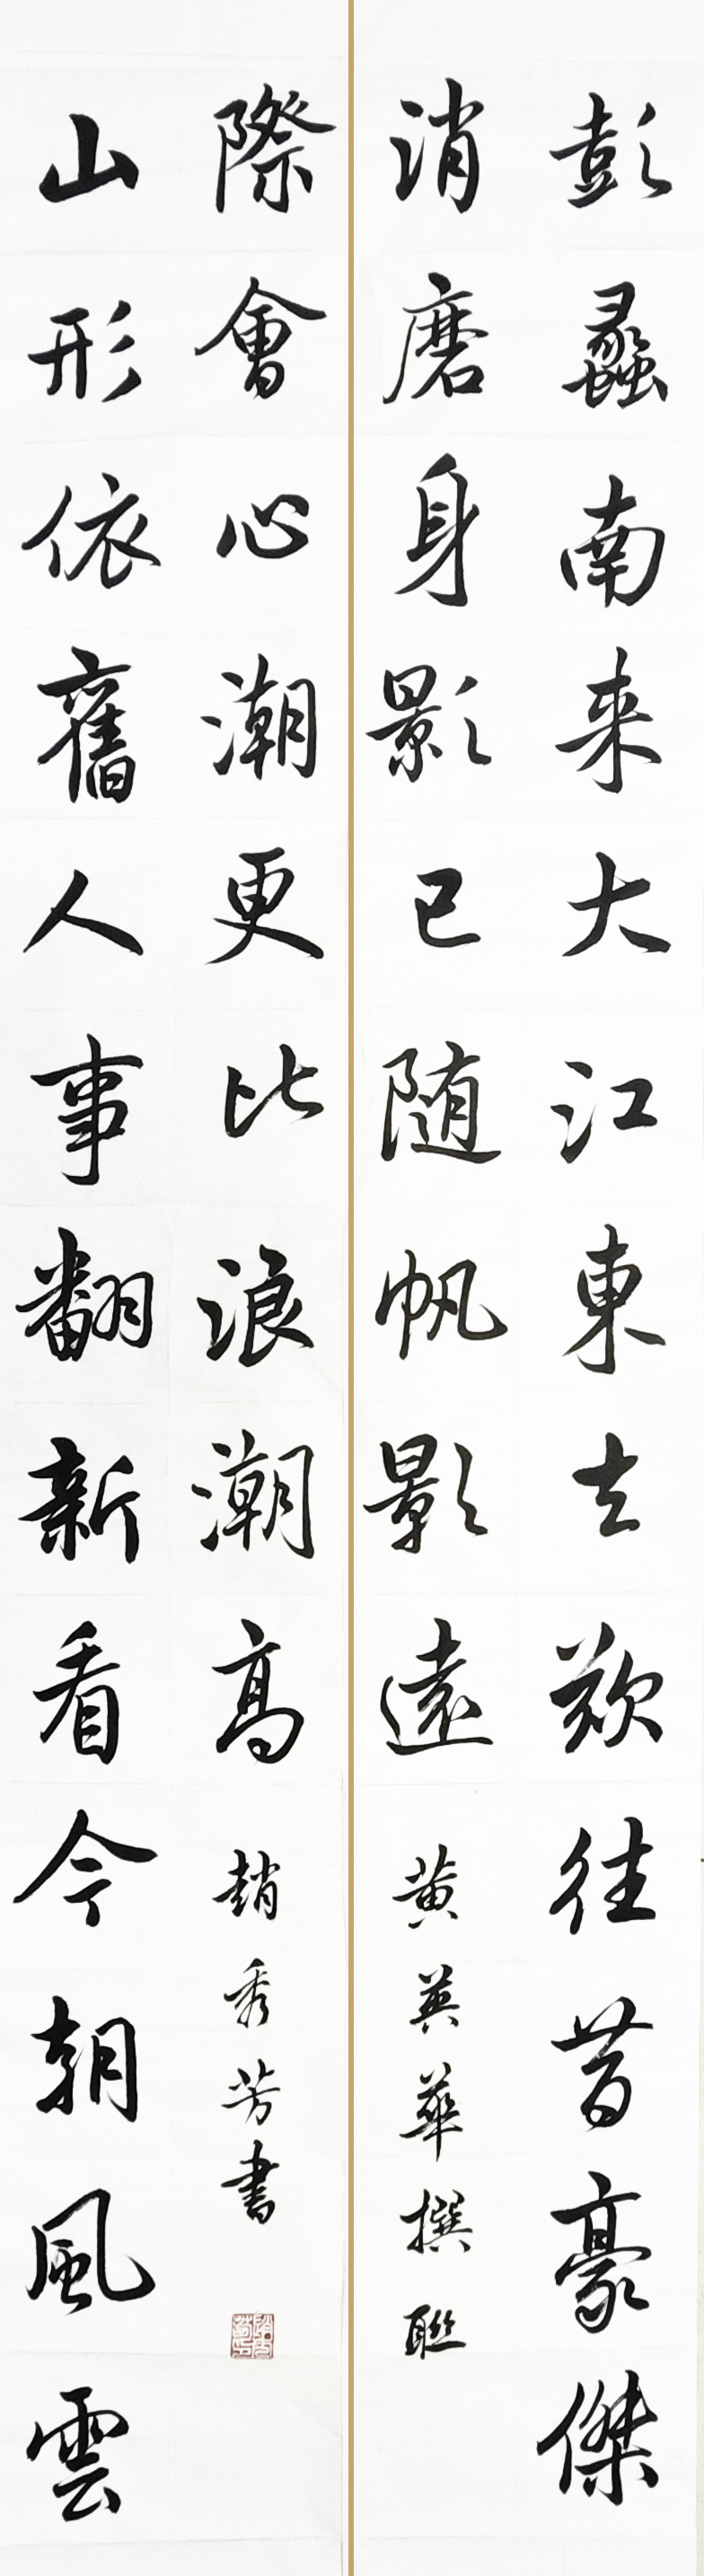 彭蠡南来大江東去歎往昔豪傑
消磨身影已随帆影遠
黄英華撰聯
山形依舊人事翻新看今朝風雲
際會心潮更比浪潮高
趙秀芳書